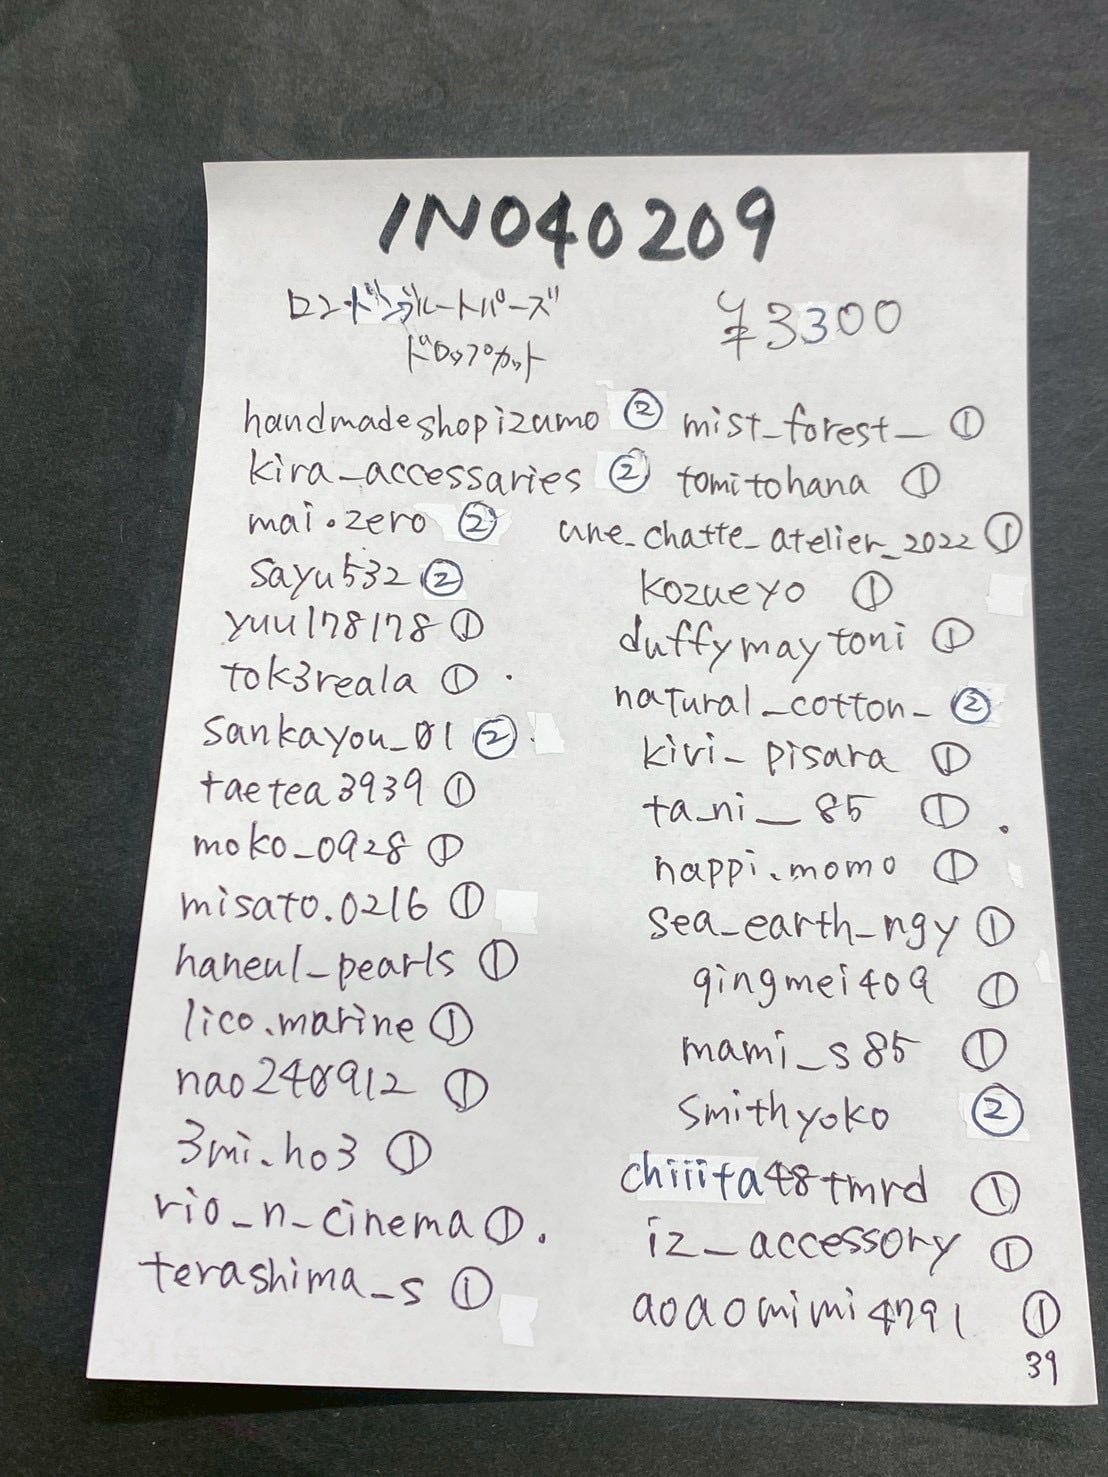 INO40209
ロンドンブルートパーズ ¥3300
ドロップカット
handmadeshopizumo ②
kira_accessaries ②
mai.zero ②
sayu532 ②
yuu178178 ①
tok3reala ①
sankayou_01 ②
taetea3939 ①
moko_0928 ①
misato.0216 ①
haneul_pearls ①
lico.marine ①
nao240912 ①
3mi.ho3 ①
rio_n_cinema ①
terashima_s ①
mist_forest_ ①
tomitohana ①
une_chatte_atelier_2022 ①
kozueyo ①
duffymaytoni ①
natural_cotton_ ②
kivi_pisara ①
ta_ni__85 ①
nappi.momo ①
sea_earth_ngy ①
qingmei409 ①
mami_s85 ①
smithyoko ②
chiiita48tmrd ①
iz_accessory ①
aoaomimi4791 ①
39